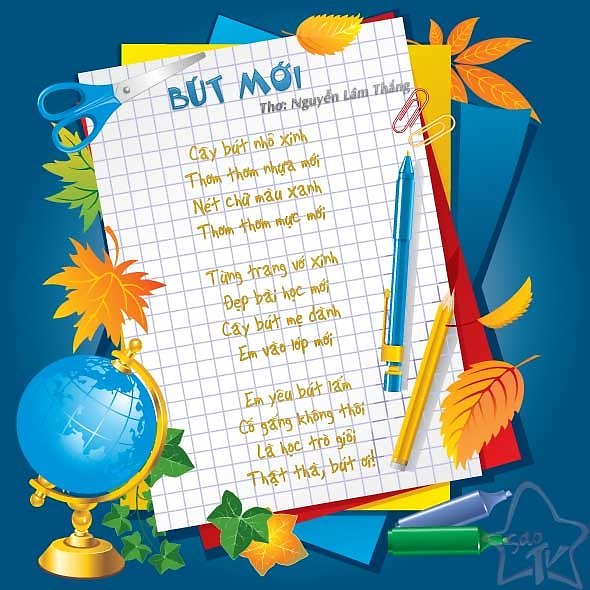 BÚT MỚI
Thơ: Nguyễn Lãm Thắng
Cây bút nhỏ xinh
Thơm thơm nhựa mới
Nét chữ màu xanh
Thơm thơm mực mới
Từng trang vở xinh
Đẹp bài học mới
Cây bút mẹ dành
Em vào lớp mới
Em yêu bút lắm
Cố gắng không thôi
Là học trò giỏi
Thật thà, bút ơi!
Sao
TV